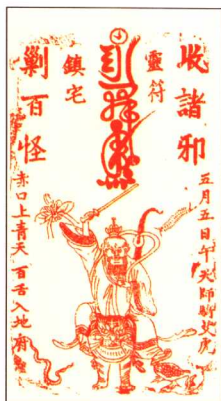 收諸邪
五月五日午天師騎艾虎
靈符
鎮宅
剿百怪
赤口上青天百舌入地府